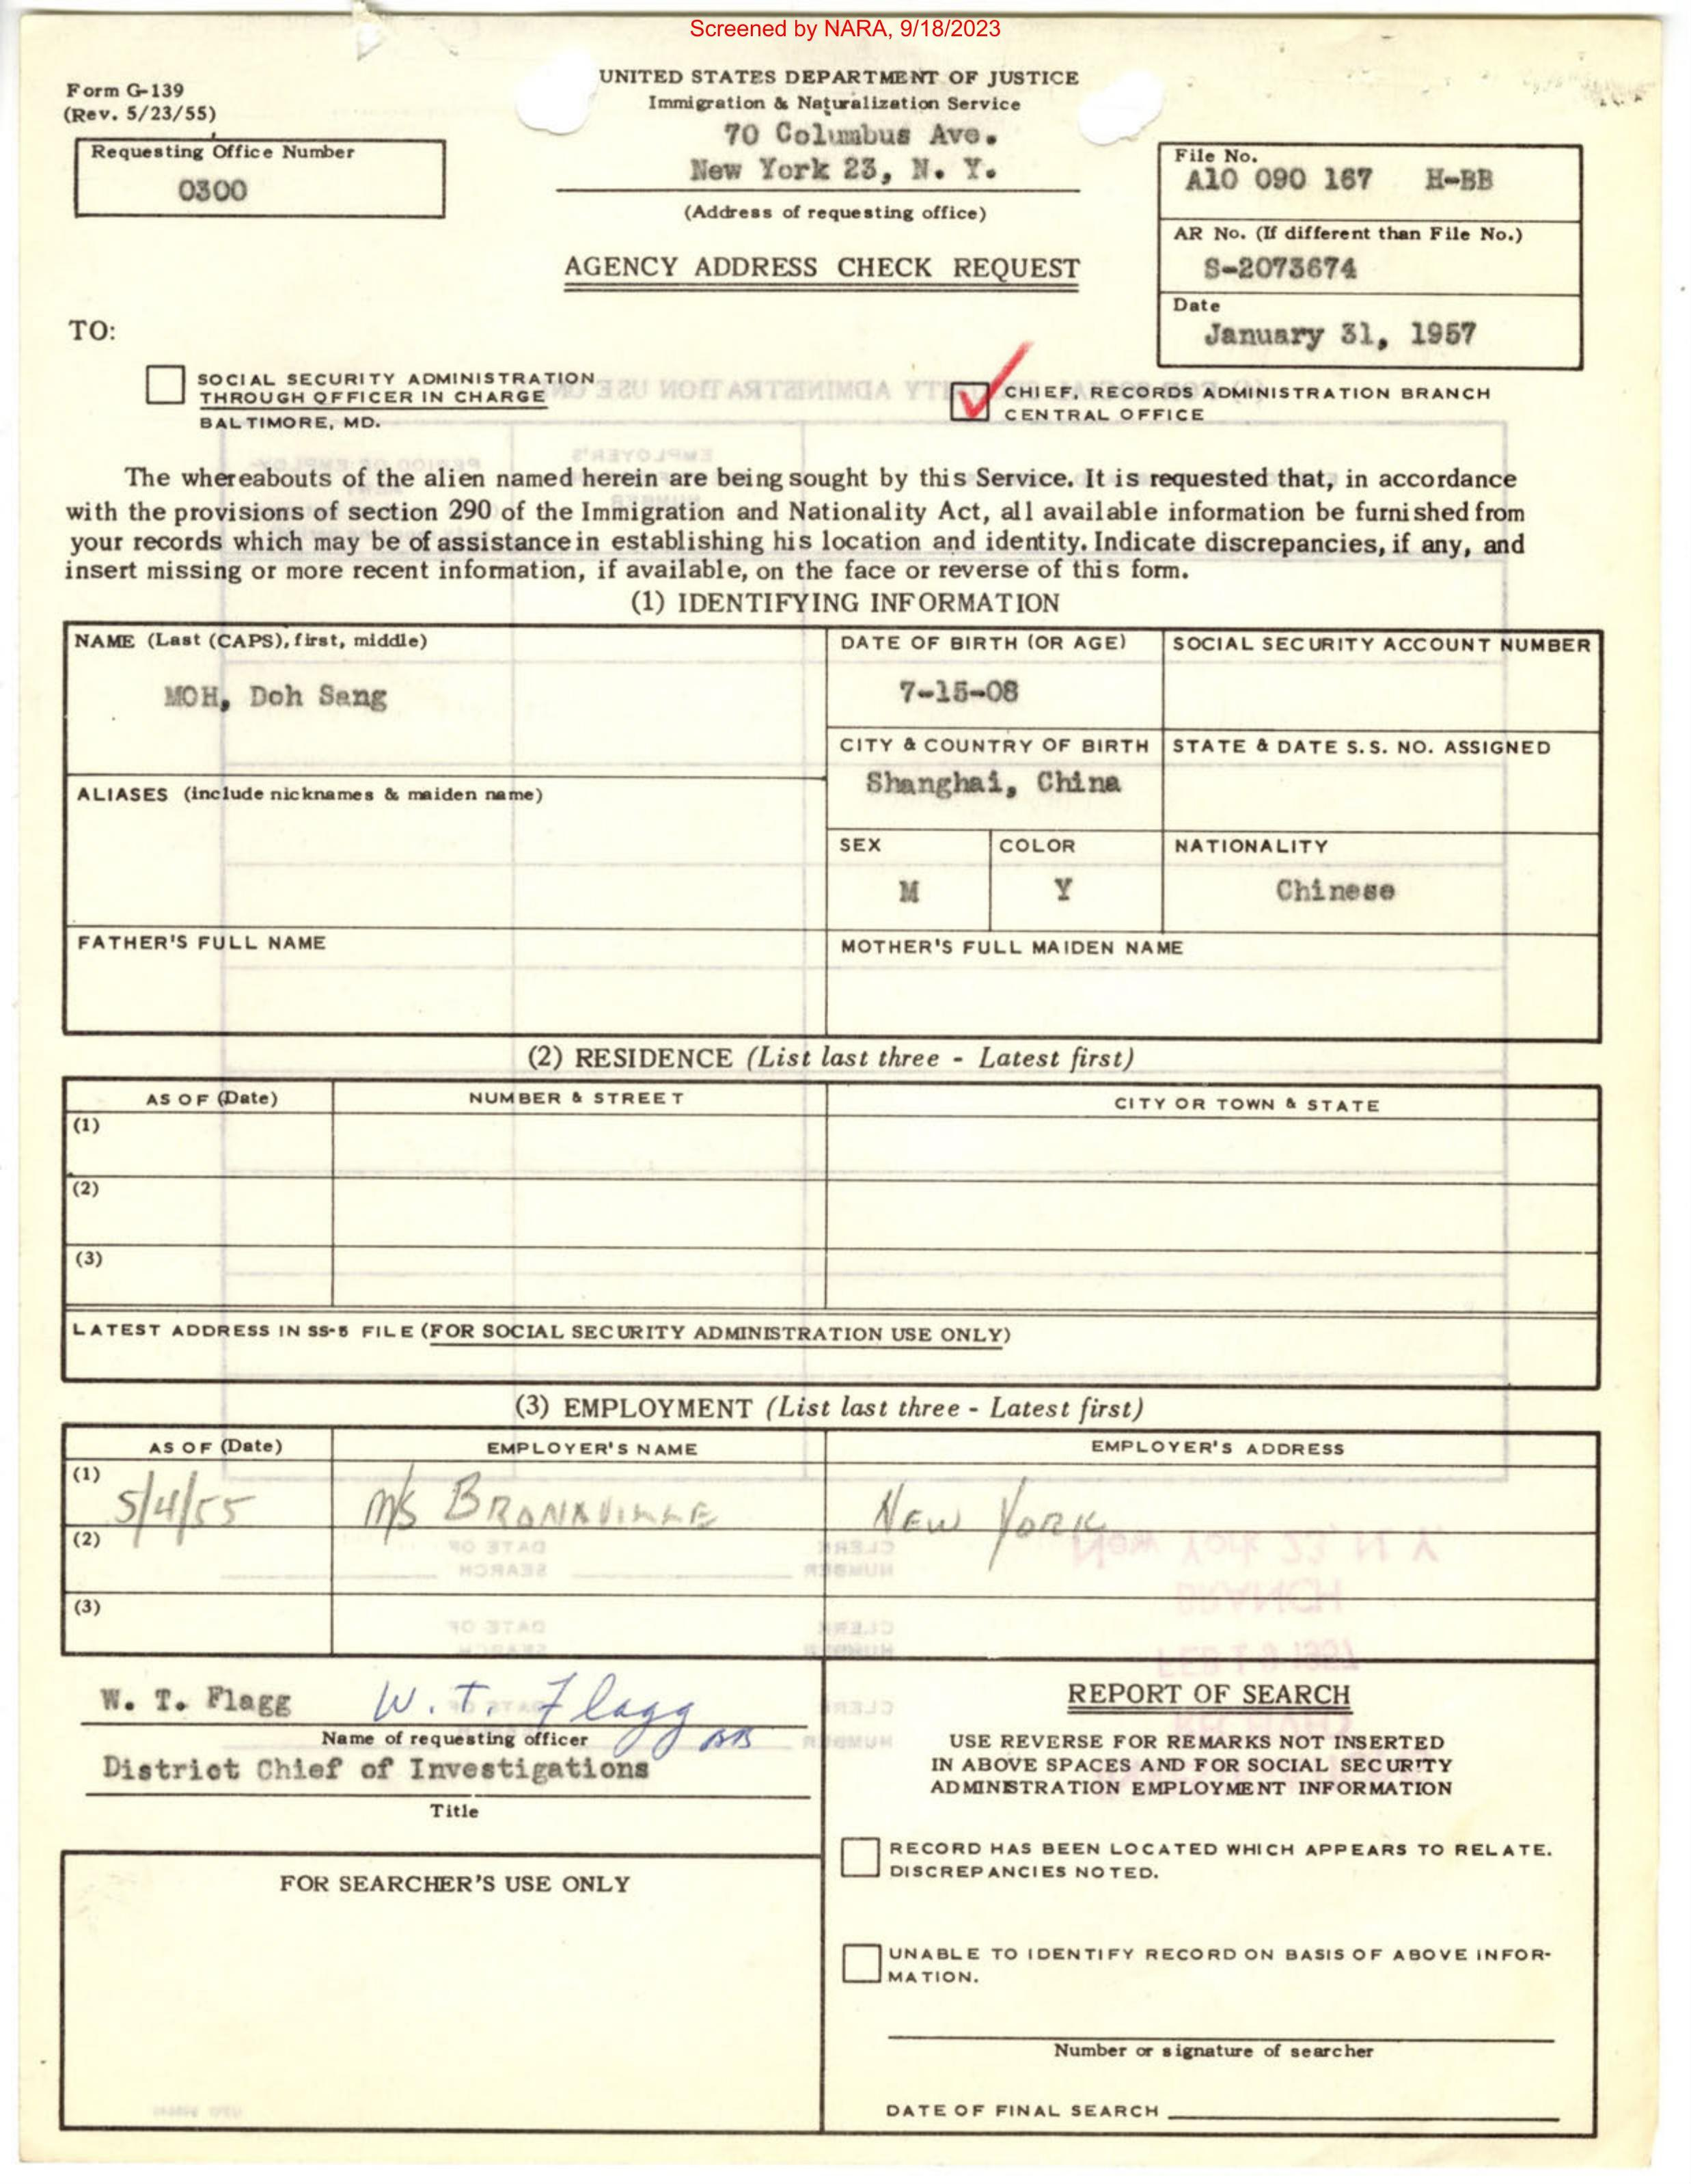 Screened by NARA, 9/18/2023
Form G-139
(Rev. 5/23/55)
UNITED STATES DEPARTMENT OF JUSTICE
Immigration & Naturalization Service
70 Columbus Ave.
New York 23, N. Y.
(Address of requesting office)
Requesting Office Number
0300
File No.
A10 090 167 H-BB
AR No. (If different than File No.)
S-2073674
Date
January 31, 1957
AGENCY ADDRESS CHECK REQUEST
TO:
SOCIAL SECURITY ADMINISTRATION
THROUGH OFFICER IN CHARGE
BALTIMORE, MD.
CHIEF, RECORDS ADMINISTRATION BRANCH
CENTRAL OFFICE
The whereabouts of the alien named herein are being sought by this Service. It is requested that, in accordance
with the provisions of section 290 of the Immigration and Nationality Act, all available information be furnished from
your records which may be of assistance in establishing his location and identity. Indicate discrepancies, if any, and
insert missing or more recent information, if available, on the face or reverse of this form.
(1) IDENTIFYING INFORMATION
NAME (Last (CAPS), first, middle)
MOH, Doh Sang
DATE OF BIRTH (OR AGE)
7-15-08
SOCIAL SECURITY ACCOUNT NUMBER
CITY & COUNTRY OF BIRTH
Shanghai, China
STATE & DATE S.S. NO. ASSIGNED
ALIASES (include nicknames & maiden name)
SEX
M
COLOR
Y
NATIONALITY
Chinese
FATHER'S FULL NAME
MOTHER'S FULL MAIDEN NAME
(2) RESIDENCE (List last three - Latest first)
AS OF (Date) NUMBER & STREET CITY OR TOWN & STATE
(1)
(2)
(3)
LATEST ADDRESS IN SS-5 FILE (FOR SOCIAL SECURITY ADMINISTRATION USE ONLY)
(3) EMPLOYMENT (List last three - Latest first)
AS OF (Date) EMPLOYER'S NAME EMPLOYER'S ADDRESS
(1) 5/4/55 M/S NEW YORK
(2)
(3)
W. T. Flagg W. T. Flagg
Name of requesting officer
District Chief of Investigations
Title
FOR SEARCHER'S USE ONLY
REPORT OF SEARCH
USE REVERSE FOR REMARKS NOT INSERTED
IN ABOVE SPACES AND FOR SOCIAL SECURITY
ADMINISTRATION EMPLOYMENT INFORMATION
RECORD HAS BEEN LOCATED WHICH APPEARS TO RELATE.
DISCREPANCIES NOTED.
UNABLE TO IDENTIFY RECORD ON BASIS OF ABOVE INFOR-
MATION.
Number or signature of searcher
DATE OF FINAL SEARCH